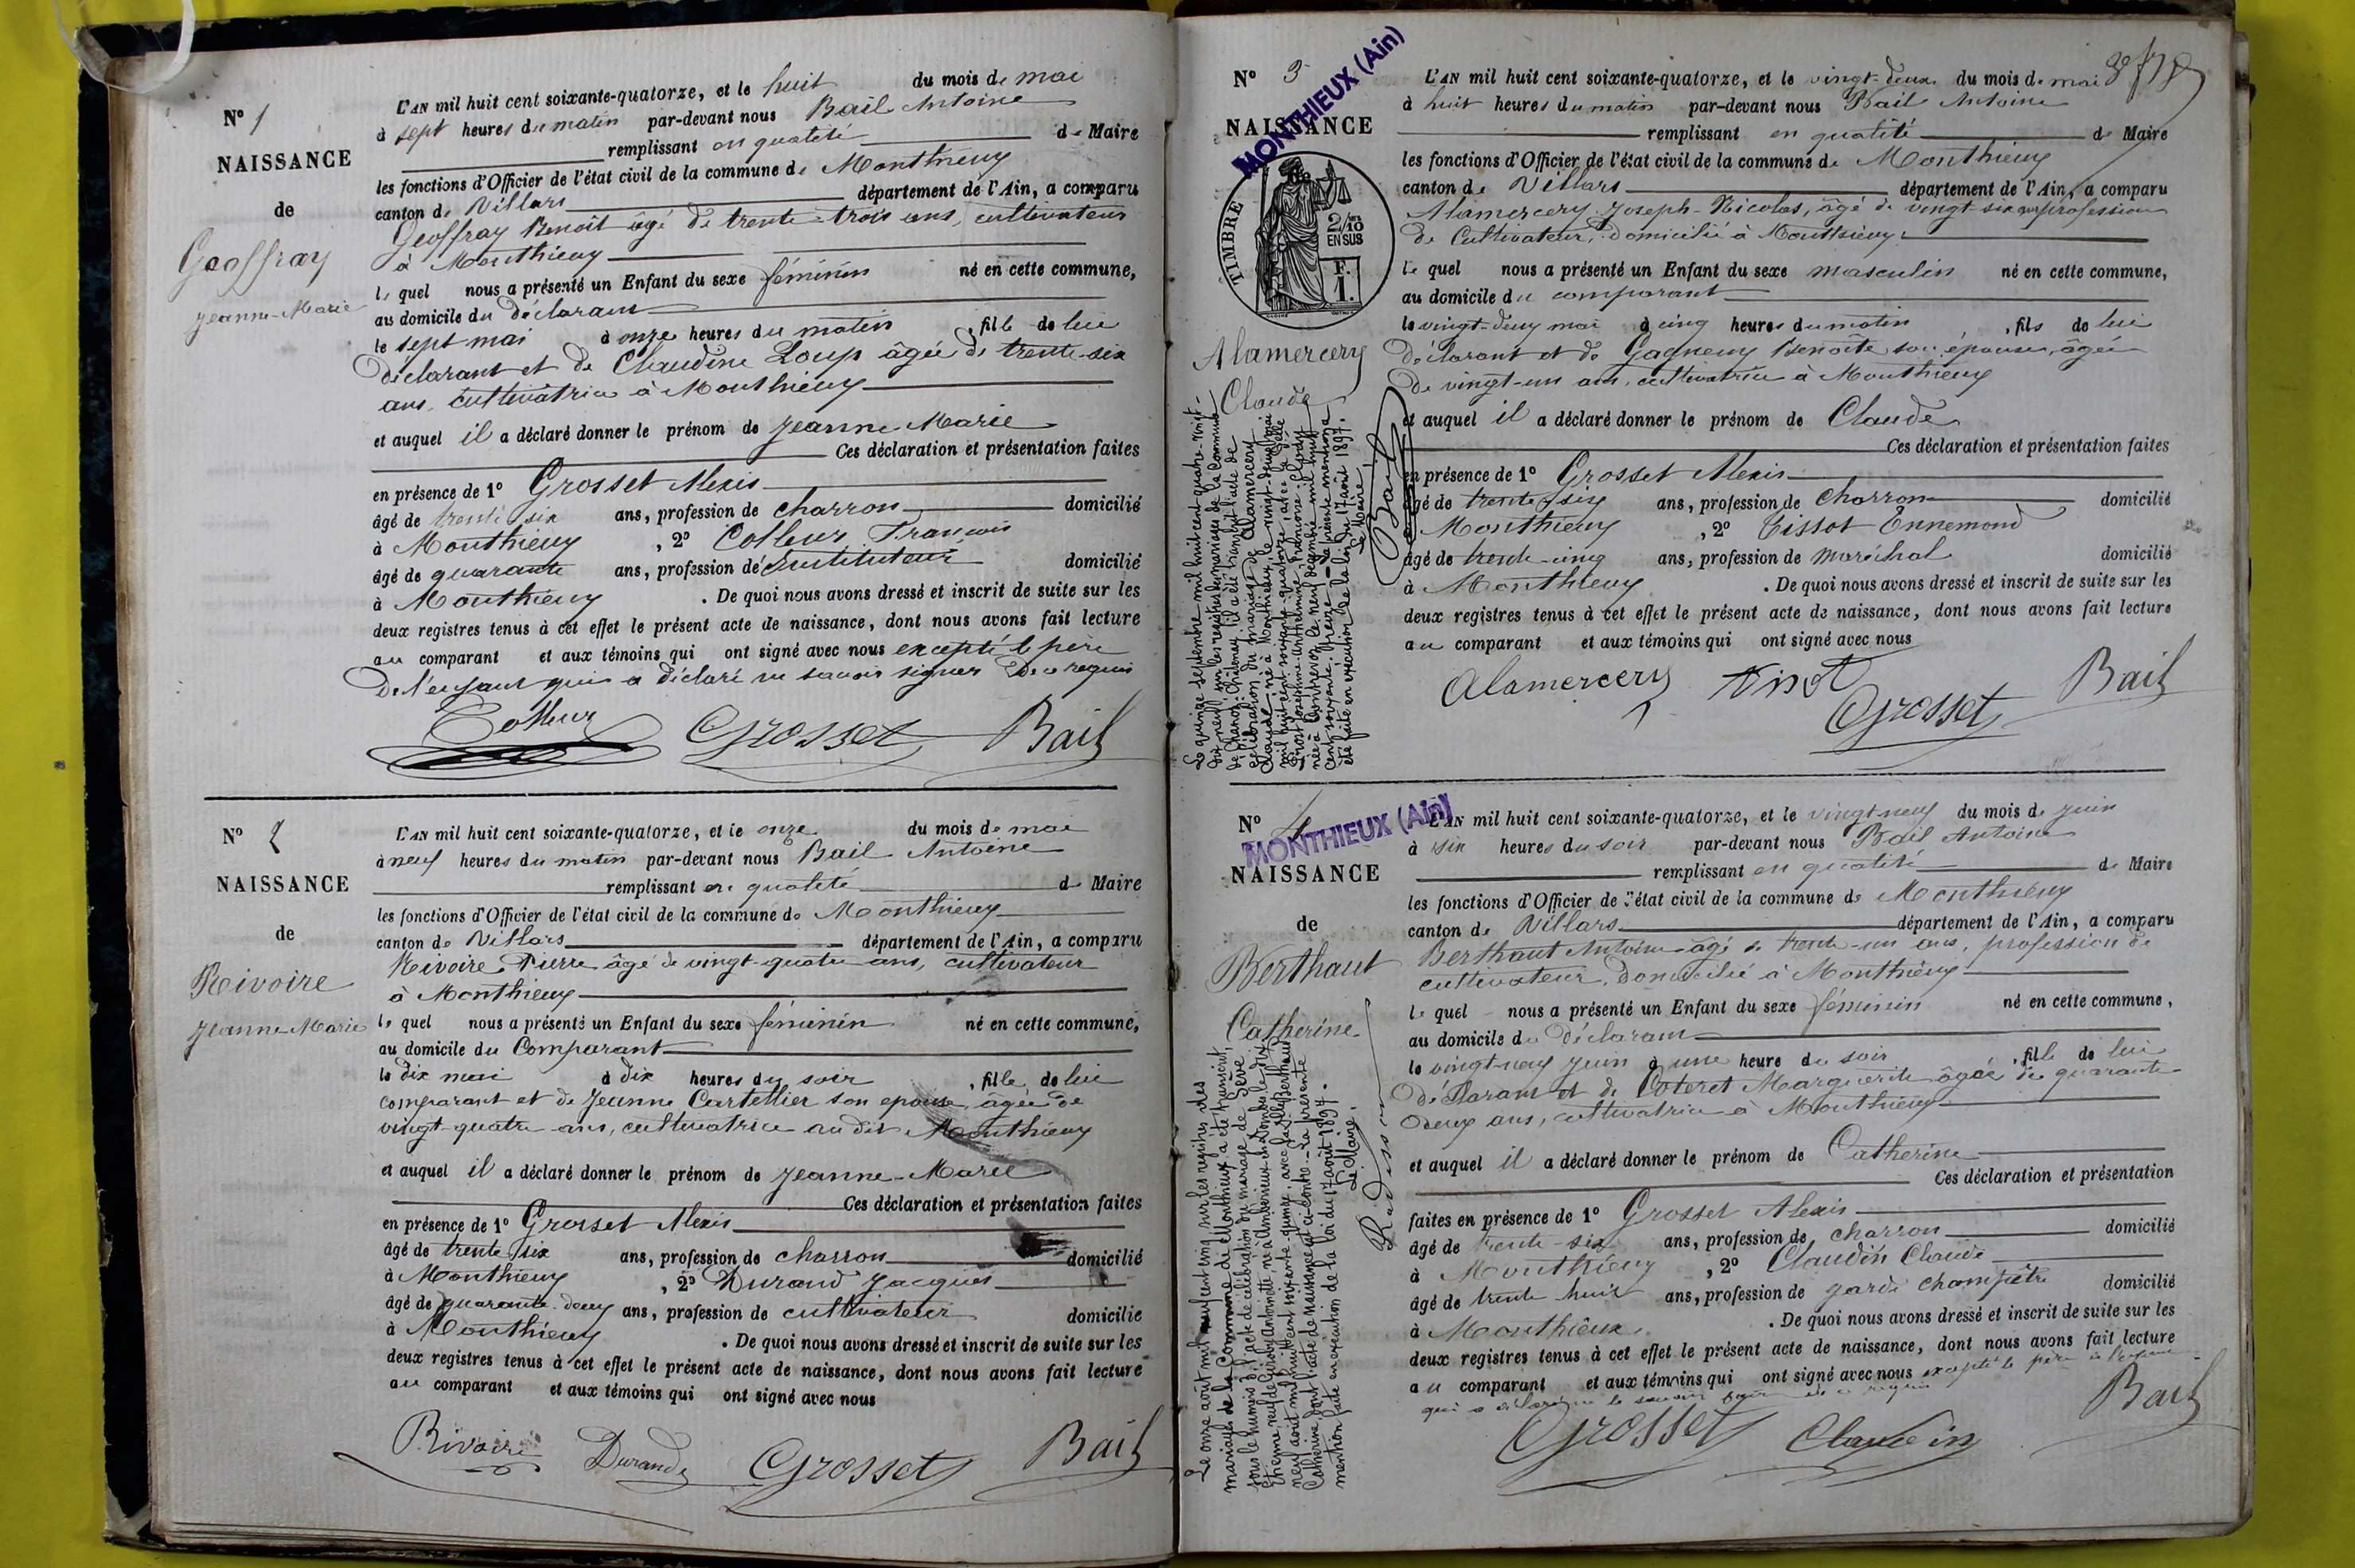 N° 1
NAISSANCE
de
Geoffray
Jeanne-Marie
L'AN mil huit cent soixante-quatorze, et le huit du mois de mai
à sept heures du matin par-devant nous Bail Antoine
remplissant en qualité de Maire
les fonctions d'Officier de l'état civil de la commune de Monthieux
canton de Villars département de l'Ain, a comparu
Geoffray Benoît âgé de trente-trois ans, cultivateur
à Monthieux
le quel nous a présenté un Enfant du sexe féminin né en cette commune,
au domicile du déclarant
le sept mai à onze heures du matin, fille de lui
déclarant et de Claudine Loup âgée de trente-six
ans, cultivatrice à Monthieux
et auquel il a déclaré donner le prénom de Jeanne Marie
Ces déclaration et présentation faites
en présence de 1° Grosset Alexis
âgé de trente six ans, profession de charron domicilié
à Monthieux, 2° Colleur François
âgé de quarante ans, profession de Instituteur domicilié
à Monthieux. De quoi nous avons dressé et inscrit de suite sur les
deux registres tenus à cet effet le présent acte de naissance, dont nous avons fait lecture
au comparant et aux témoins qui ont signé avec nous excepté le père
de l'enfant qui a déclaré ne savoir signer de ce requis
Colleur Grosset Bail
N° 2
NAISSANCE
de
Rivoire
Jeanne Marie
L'AN mil huit cent soixante-quatorze, et le onze du mois de mai
à neuf heures du matin par-devant nous Bail Antoine
remplissant en qualité de Maire
les fonctions d'Officier de l'état civil de la commune de Monthieux
canton de Villars département de l'Ain, a comparu
Rivoire Pierre âgé de vingt-quatre ans, cultivateur
à Monthieux
le quel nous a présenté un Enfant du sexe féminin né en cette commune,
au domicile du Comparant
le dix mai à dix heures du soir, fille de lui
comparant et de Jeanne Cartellier son epouse, âgée de
vingt-quatre ans, cultivatrice au dit Monthieux
et auquel il a déclaré donner le prénom de Jeanne-Marie
Ces déclaration et présentation faites
en présence de 1° Grosset Alexis
âgé de trente six ans, profession de charron domicilié
à Monthieux, 2° Durand Jacques
âgé de quarante deux ans, profession de cultivateur domicilié
à Monthieux. De quoi nous avons dressé et inscrit de suite sur les
deux registres tenus à cet effet le présent acte de naissance, dont nous avons fait lecture
au comparant et aux témoins qui ont signé avec nous
Rivoire Durand Grosset Bail
N° 3
MONTHIEUX (Ain)
NAISSANCE
de
TIMBRE
2/10
EN SUS
F.
1.
Alamercery
Claude
Le quinze septembre mil huit cent quatre-vingt-
dix neuf sur les registres des mariages de la Commune
de Chanoz-Châtenay il a été transcrit l'acte de
célébration du mariage de Alamercery
Claude né à Monthieux le vingt-deux mai
mil huit cent soixante-quatorze, avec la dlle
Prost Joséphine Anthelmine Françoise Claudy
née à Confrevoz le neuf décembre mil huit
cent soixante treize = La présente mention a
été faite en exécution de la loi du 17 août 1897.
Le Maire
Bail
L'AN mil huit cent soixante-quatorze, et le vingt-deux du mois de mai
à huit heures du matin par-devant nous Bail Antoine
remplissant en qualité de Maire
les fonctions d'Officier de l'état civil de la commune de Monthieux
canton de Villars département de l'Ain, a comparu
Alamercery Joseph-Nicolas, âgé de vingt-six ans profession
de Cultivateur, domicilié à Monthieux
le quel nous a présenté un Enfant du sexe masculin né en cette commune,
au domicile du comparant
le vingt-deux mai à cinq heures du matin, fils de lui
déclarant et de Gagneux Benoîte son epouse, âgée
de vingt-un ans, cultivatrice à Monthieux
et auquel il a déclaré donner le prénom de Claude
Ces déclaration et présentation faites
en présence de 1° Grosset Alexis
âgé de trente six ans, profession de charron domicilié
Monthieux, 2° Tissot Ennemond
âgé de trente-cinq ans, profession de maréchal domicilié
à Monthieux. De quoi nous avons dressé et inscrit de suite sur les
deux registres tenus à cet effet le présent acte de naissance, dont nous avons fait lecture
au comparant et aux témoins qui ont signé avec nous
Alamercery Tissot Grosset Bail
N° 4
MONTHIEUX (Ain)
NAISSANCE
de
Berthaut
Catherine
Le onze août mil neuf cent cinq sur les registres des
mariages de la Commune de Monthieux a été transcrit,
sous le numéro 3, l'acte de célébration du mariage de Sève
Catherine dont l'acte de naissance est ci-contre. La présente
mention faite en exécution de la loi du 17 août 1897.
Le Maire.
L'AN mil huit cent soixante-quatorze, et le vingt-neuf du mois de juin
à six heures du soir par-devant nous Bail Antoine
remplissant en qualité de Maire
les fonctions d'Officier de l'état civil de la commune de Monthieux
canton de Villars département de l'Ain, a comparu
Berthaut Antoine âgé de trente-un ans, profession de
cultivateur, domicilié à Monthieux
le quel nous a présenté un Enfant du sexe féminin né en cette commune,
au domicile du déclarant
le vingt-neuf juin à une heure du soir, fille de lui
déclarant et de Coteret Marguerite âgée de quarante
deux ans, cultivatrice à Monthieux
et auquel il a déclaré donner le prénom de Catherine
Ces déclaration et présentation
faites en présence de 1° Grosset Alexis
âgé de trente-six ans, profession de charron domicilié
à Monthieux, 2° Claudin Claude
âgé de trente huit ans, profession de garde champêtre domicilié
à Monthieux. De quoi nous avons dressé et inscrit de suite sur les
deux registres tenus à cet effet le présent acte de naissance, dont nous avons fait lecture
au comparant et aux témoins qui ont signé avec nous excepté le père de l'enfant
qui a déclaré ne le savoir faire de ce requis
Grosset Claudin Bail